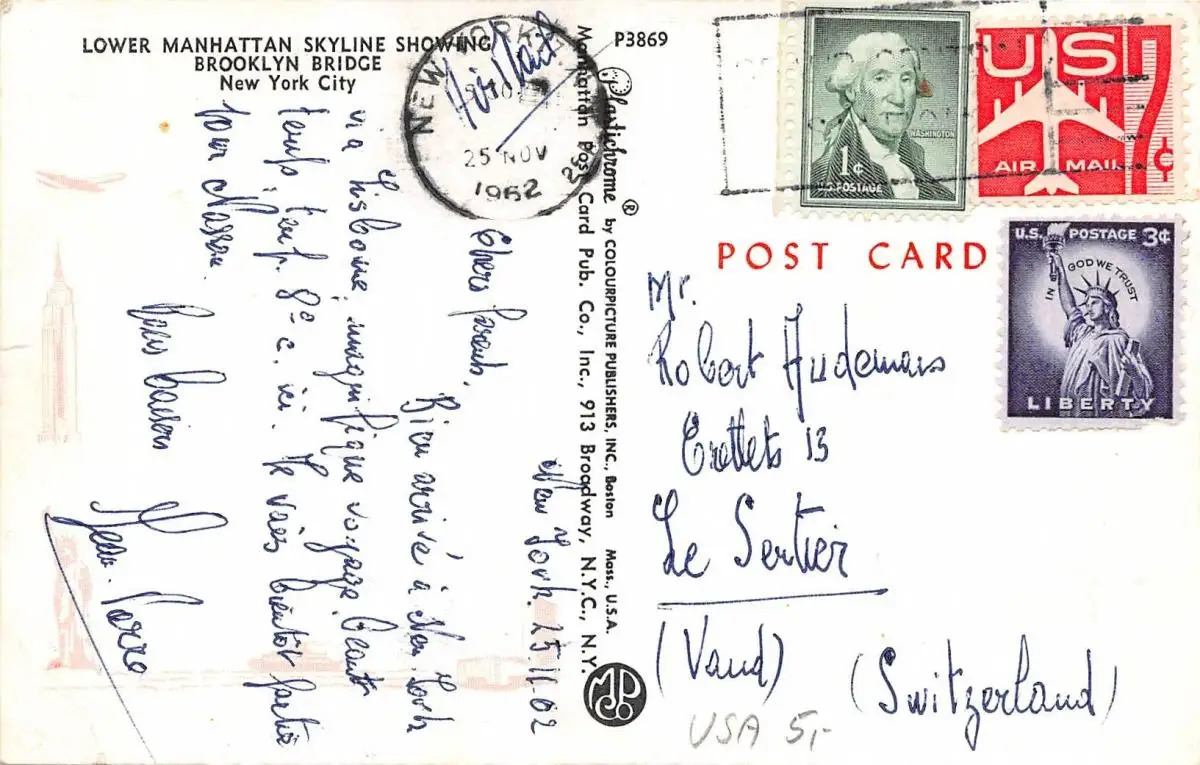 LOWER MANHATTAN SKYLINE SHOWING
BROOKLYN BRIDGE
New York City
P3869
NEW YORK
25 NOV
1962
Plastichrome® by COLOURPICTURE PUBLISHERS, INC., Boston Mass., U.S.A.
Manhattan Post Card Pub. Co., Inc., 913 Broadway, N.Y.C., N.Y.
MPC
Co
1¢
WASHINGTON
U.S. POSTAGE
US
AIR MAIL
7¢
U.S. POSTAGE 3¢
IN GOD WE TRUST
LIBERTY
POST CARD
New York. 25.11.62
Chers parents,
Bien arrivé à New York
via Lisbonne, magnifique voyage. Beau
temps, temp. 8° c. ici. Je vais bientôt partir
pour Nassau.
Bons baisers
Mr.
Robert Audemars
Crettets 13
Le Sentier
(Vaud)
(Switzerland)
USA 5,-